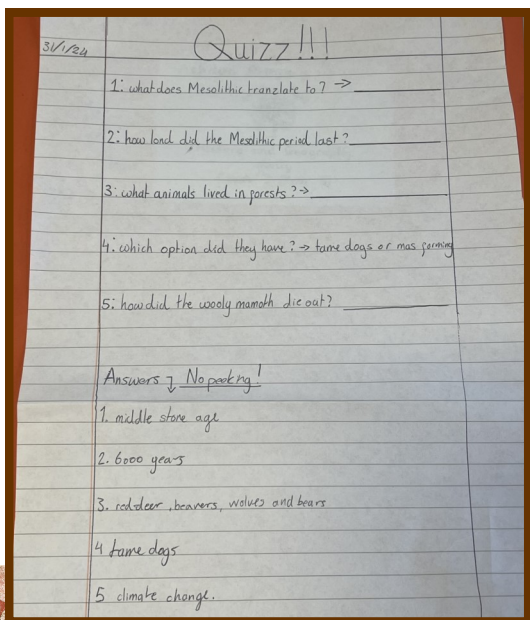 31/1/24
Quizz!!!
1: what does Mesolithic tranzlate to? →
2: how lond did the Mesolithic period last?
3: what animals lived in forests? →
4: which option did they have? → tame dogs or mas farming
5: how did the wooly mamoth die out?
Answers ↴ No peeking!
1. middle stone age
2. 6000 years
3. red deer, beavers, wolves and bears
4 tame dogs
5 climate change.